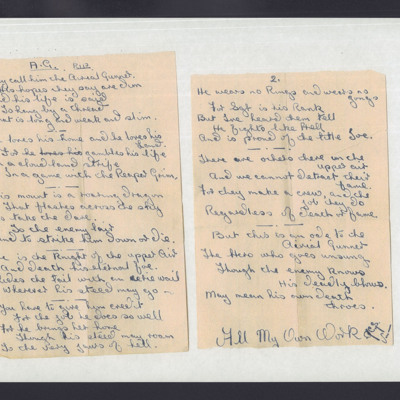 A.G., R.A.F.
y call him the Aerial Gunner.
His hopes they say are dim
d his life is said
To hang by a thread
at is long and weak and slim.
loves his home and he loves his
land.
For he loves his gambles his life
a cloud land strife
In a game with the Reaper Grim.
is mount is a roaring dragon
That flashes across the sky
take the Dare.
To the enemy lair
to strike him down or Die.
e is the Knight of the upper Air
And Death his eternal foe.
ides the Tail with an
Where'er his steed may go -
You have to give him credit
For the job he does so well
For he brings her home
Though his steed may roam
To the very jaws of hell.
2.
He wears no Rings and wears no
gongs
For Sgt is his Rank
But I've heard them tell
He fights like Hell
And is proud of the title
There are others there in the
upper air
And we cannot detract their
fame.
For they make a crew, and the
job they do
Regardless of death or fame.
But this is an ode to the
Aerial Gunner
The Hero who goes unsung
Though the enemy knows
His Deadly blows.
May mean his own death
throes.
All My Own Work